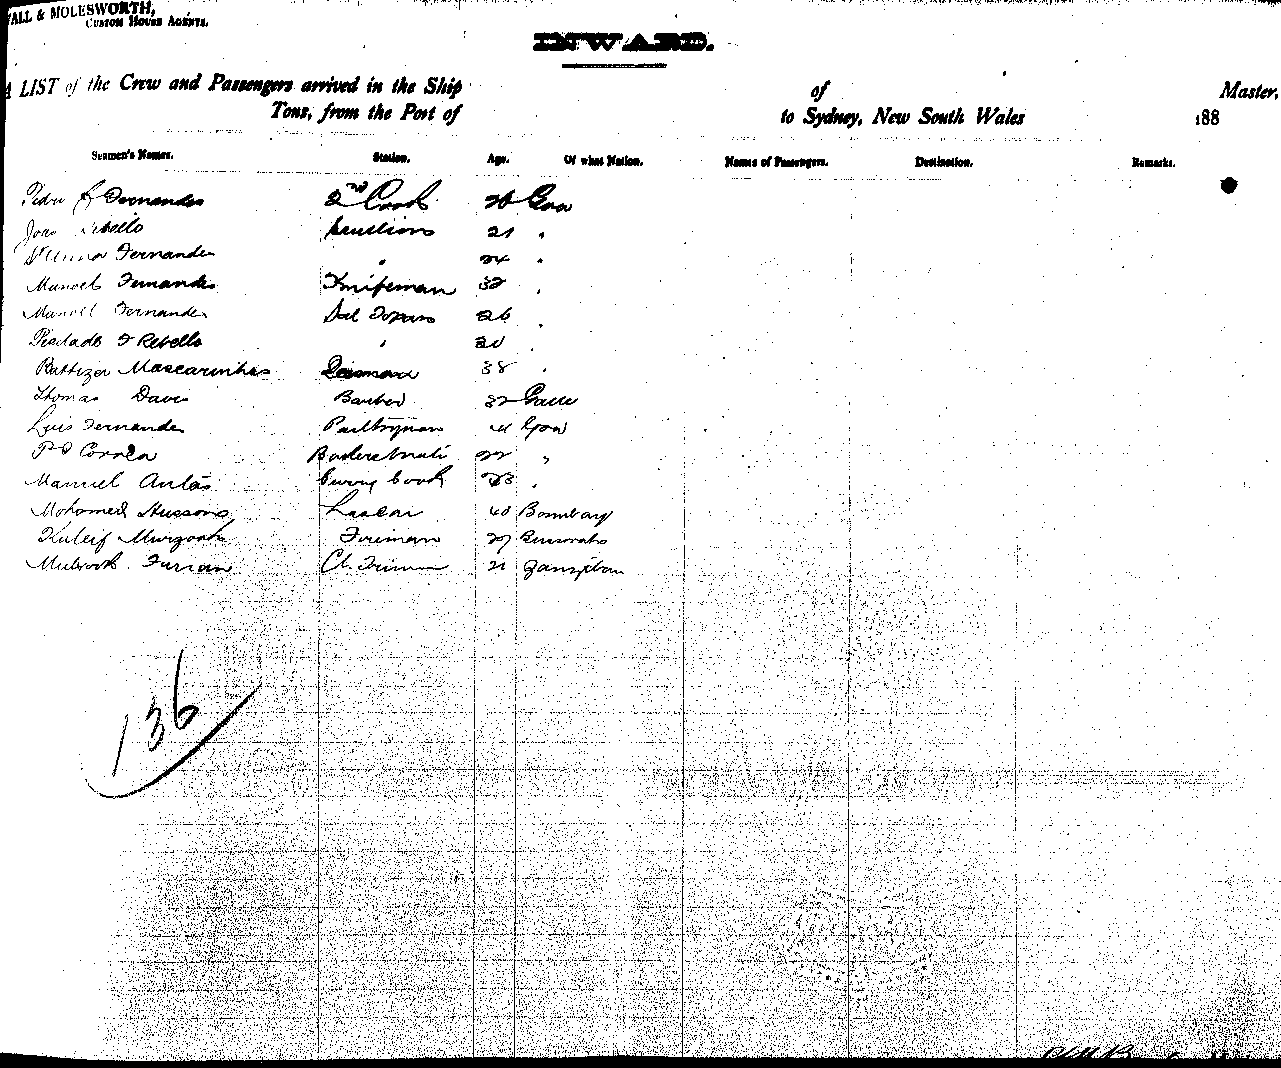 WALL & MOLESWORTH,
CUSTOM HOUSE AGENTS.
INWARD.
A LIST of the Crew and Passengers arrived in the Ship of Master,
Tons, from the Port of to Sydney, New South Wales 188
Seamen's Names. Station. Age. Of what Nation. Names of Passengers. Destination. Remarks.
Pedro J Fernandes 2nd Cook Goa
Joao Rebello Scullions 21 "
Fernandes " 24 "
Manoel Fernandes Knifeman 32 "
Manoel Fernandes Topass 26 "
Piedade F Rebello " 20 "
Baltizar Mascarinhas 38 "
Thomas Davis Barber 32 Galle
Luis Fernandes Poultryman 21 Goa
Correa 22 "
Manuel Antao Curry Cook 23 "
Mohomed Hussons Lascar 40 Bombay
Murzook Fireman 27
Mubrook Furran Ch. Fireman 21 Zanzibar
136